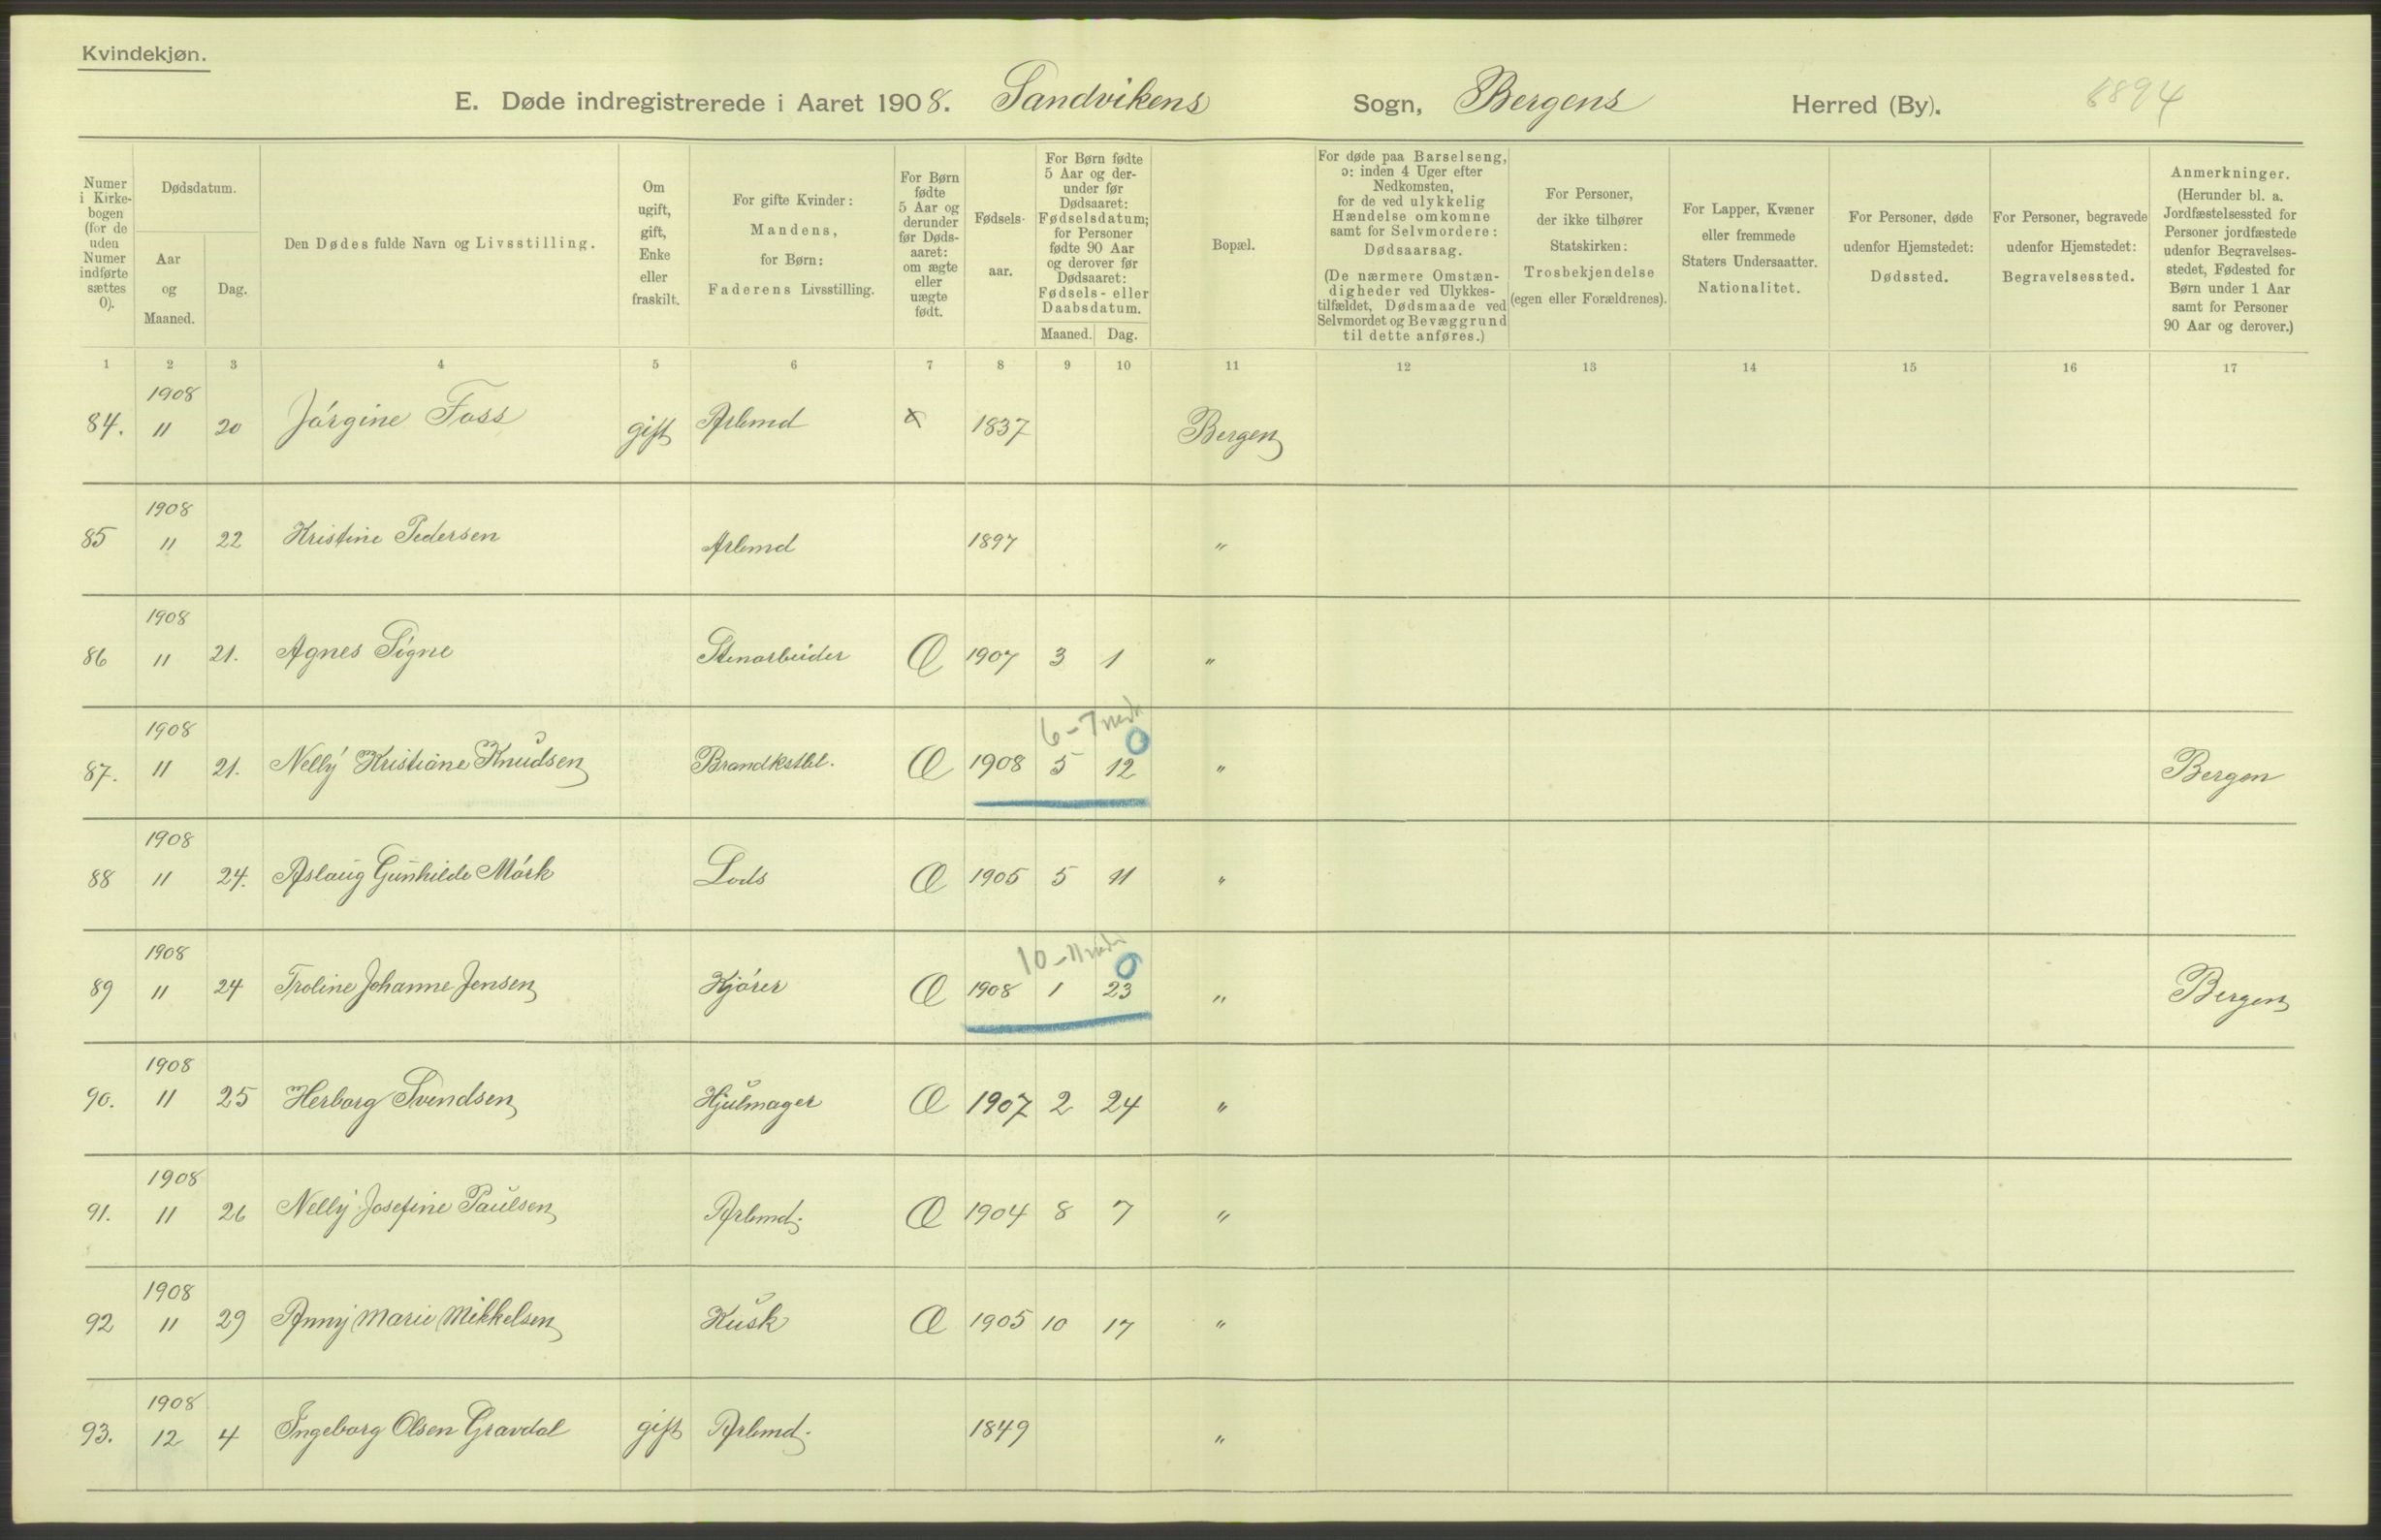 Kvindekjøn.
E. Døde indregistrerede i Aaret 1908. Sandvikens Sogn, Bergens Herred (By). 8894
Numer i Kirkebogen (for de uden Numer indførte sættes 0).
Dødsdatum.
Aar og Maaned.
Dag.
Den Dødes fulde Navn og Livsstilling.
Om ugift, gift, Enke eller fraskilt.
For gifte Kvinder: Mandens, for Børn: Faderens Livsstilling.
For Børn fødte 5 Aar og derunder før Dødsaaret: om ægte eller uægte født.
Fødselsaar.
For Børn fødte 5 Aar og derunder før Dødsaaret: Fødselsdatum; for Personer fødte 90 Aar og derover før Dødsaaret: Fødsels- eller Daabsdatum.
Maaned. Dag.
Bopæl.
For døde paa Barselseng, ɔ: inden 4 Uger efter Nedkomsten, for de ved ulykkelig Hændelse omkomne samt for Selvmordere: Dødsaarsag.
(De nærmere Omstændigheder ved Ulykkestilfældet, Dødsmaade ved Selvmordet og Bevæggrund til dette anføres.)
For Personer, der ikke tilhører Statskirken: Trosbekjendelse (egen eller Forældrenes).
For Lapper, Kvæner eller fremmede Staters Undersaatter. Nationalitet.
For Personer, døde udenfor Hjemstedet: Dødssted.
For Personer, begravede udenfor Hjemstedet: Begravelsessted.
Anmerkninger. (Herunder bl. a. Jordfæstelsessted for Personer jordfæstede udenfor Begravelsesstedet, Fødested for Børn under 1 Aar samt for Personer 90 Aar og derover.)
1 2 3 4 5 6 7 8 9 10 11 12 13 14 15 16 17
1908
84. 11 20 Jórgine Foss gift Arbmd x 1837 Bergen
1908
85 11 22 Kristine Pedersen Arbmd 1897 "
1908
86 11 21. Agnes Signe Stenarbeider Æ 1907 3 1 "
1908 6-7 mdr 0
87. 11 21. Nelly Kristiane Knudsen Brandkstbl. Æ 1908 5 12 " Bergen
1908
88 11 24. Aslaug Gunhilde Mórk Lods Æ 1905 5 11 "
1908 10-11 mdr 0
89 11 24 Troline Johanne Jensen Kjórer Æ 1908 1 23 " Bergen
1908
90. 11 25 Herborg Svendsen Hjulmager Æ 1907 2 24 "
1908
91. 11 26 Nelly Josefine Paulsen Arbmd. Æ 1904 8 7 "
1908
92 11 29 Anny Marie Mikkelsen Kusk Æ 1905 10 17 "
1908
93. 12 4 Ingeborg Olsen Gravdal gift Arbmd. 1849 "